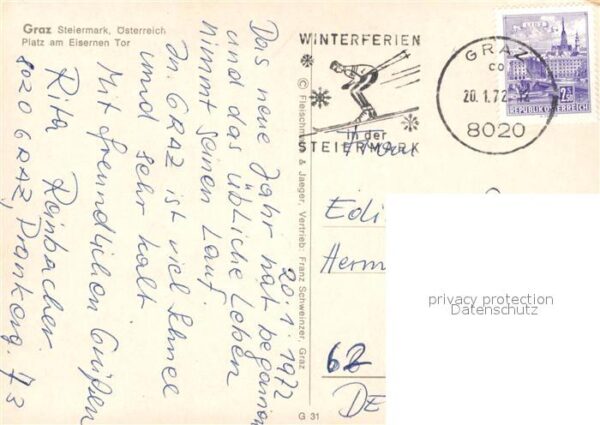 Graz Steiermark, Österreich
Platz am Eisernen Tor
20.1.1972
Das neue Jahr hat begonnen
und das übliche Leben
nimmt seinen Lauf.
In GRAZ ist viel Schnee
und sehr kalt.
Mit freundlichen Grüßen
Rita Rainbacher
8020 GRAZ, Prankerg. 73
© Fleischmann & Jaeger, Vertrieb: Franz Schweinzer, Graz
G 31
WINTERFERIEN
in der
STEIERMARK
GRAZ
20.1.72
8020
LINZ
2.50
REPUBLIK ÖSTERREICH
Frau
Edi
Herm
62
DE
privacy protection
Datenschutz